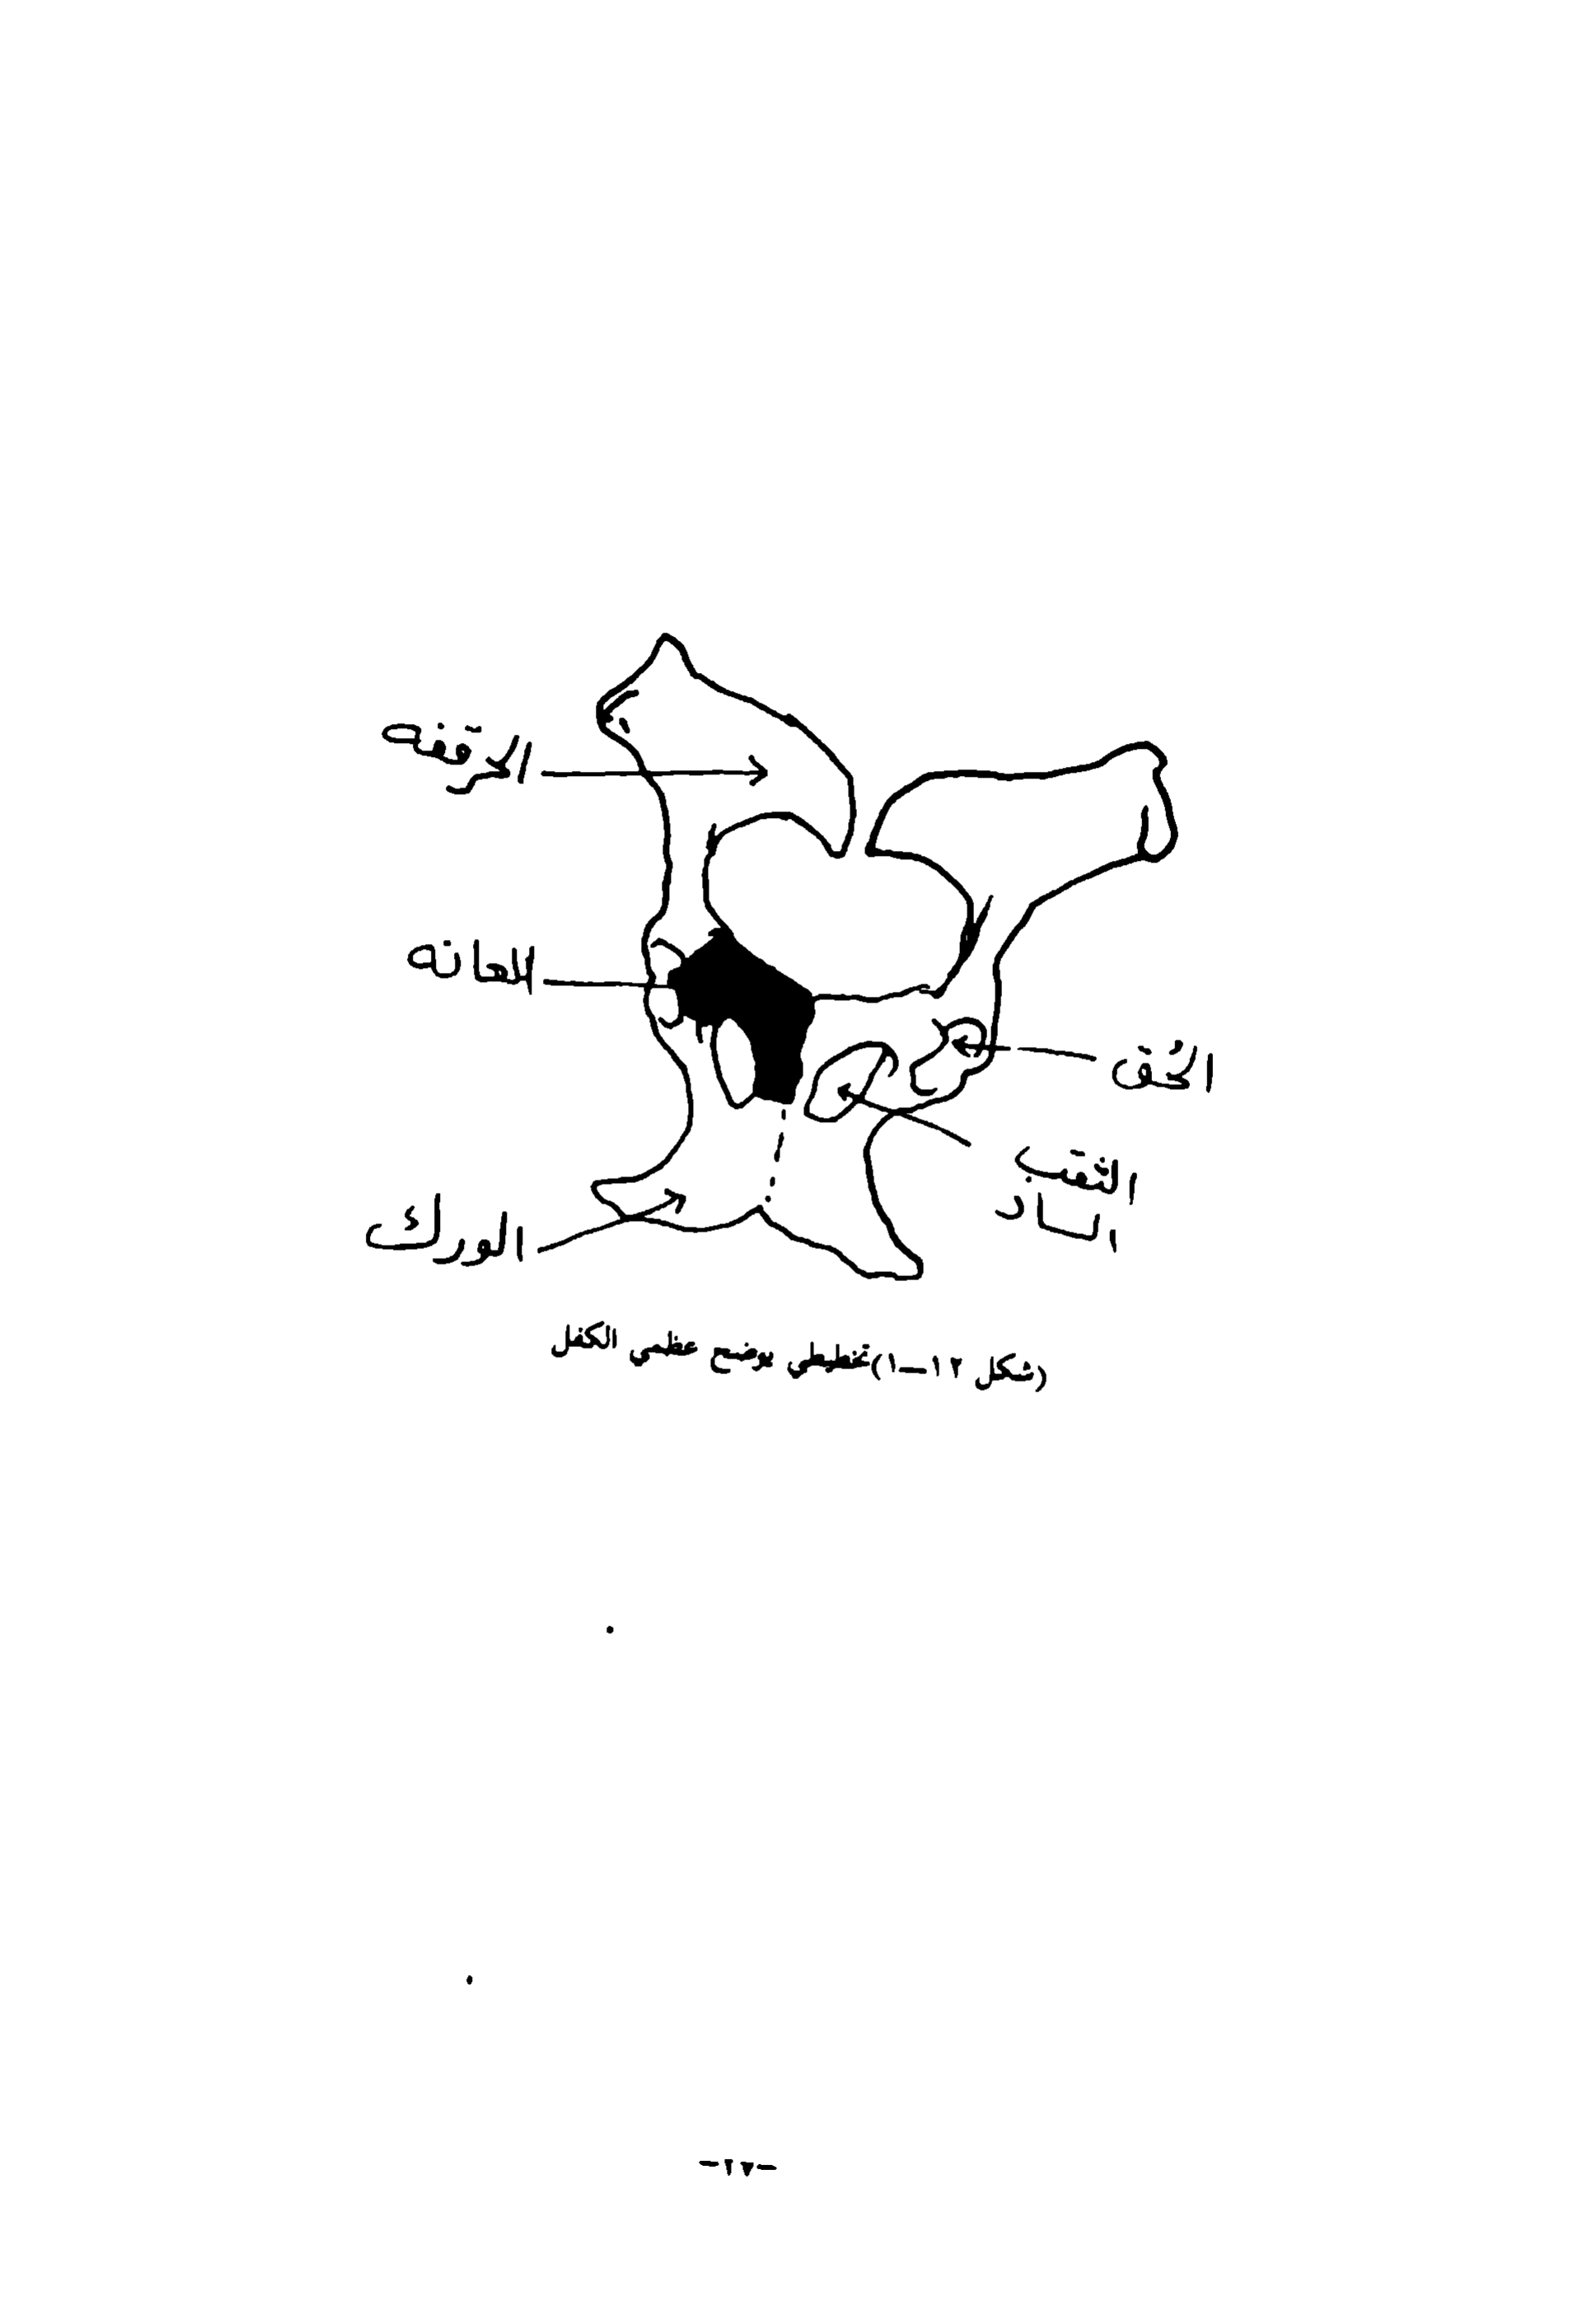 الحرقفه
العانه
الحُق
الثقب
الساد
الورك
(شكل ١٢–١) تخطيطي يوضح عظمي الكفل
-٢٧-